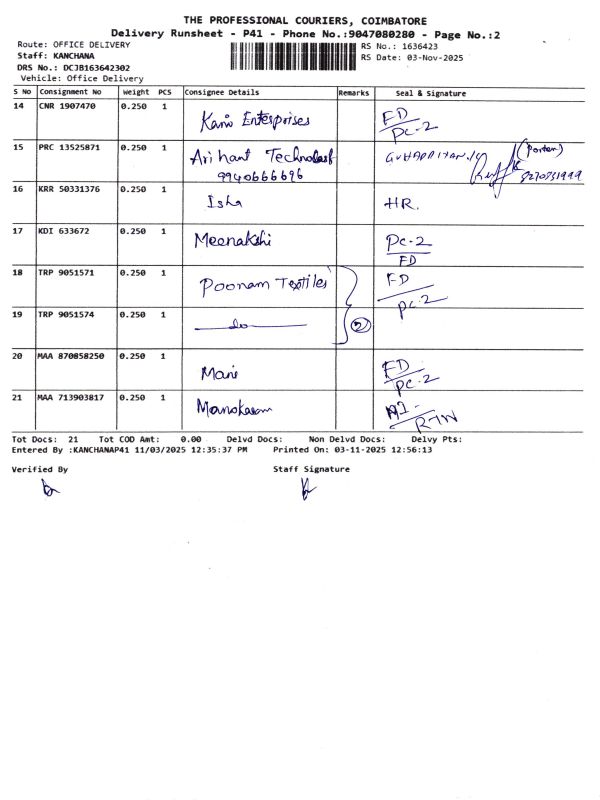 THE PROFESSIONAL COURIERS, COIMBATORE
Delivery Runsheet - P41 - Phone No.:9047080280 - Page No.:2
Route: OFFICE DELIVERY RS No.: 1636423
Staff: KANCHANA RS Date: 03-Nov-2025
DRS No.: DC3B163642302
Vehicle: Office Delivery
S No Consignment No Weight PCS Consignee Details Remarks Seal & Signature
14 CNR 1907470 0.250 1 Kani Enterprises FD
PC-2
15 PRC 13525871 0.250 1 Arihant (Porter)
9940666696
16 KRR 50331376 0.250 1 Isha HR.
17 KDI 633672 0.250 1 Meenakshi PC-2
FD
18 TRP 9051571 0.250 1 Poonam Textiles FD
PC-2
19 TRP 9051574 0.250 1 do 2
20 MAA 870858250 0.250 1 Mani FD
PC-2
21 MAA 713903817 0.250 1 RTN
Tot Docs: 21 Tot COD Amt: 0.00 Delvd Docs: Non Delvd Docs: Delvy Pts:
Entered By :KANCHANAP41 11/03/2025 12:35:37 PM Printed On: 03-11-2025 12:56:13
Verified By Staff Signature